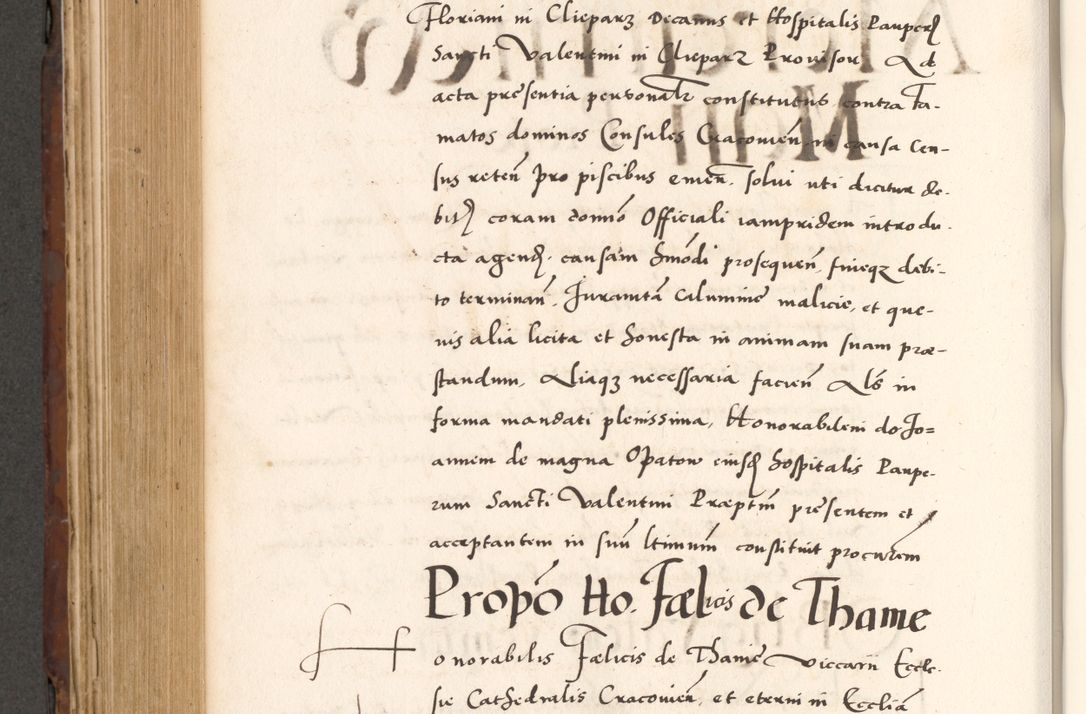 Floriani in Clieparz Decanus et Hospitalis Pauperꝝ
Sancti Valentini in Clieparz Provisor Ad
acta presentia personalr constitutus contra Fa-
matos dominos Consules Cracovien̄ in causa Cen-
sus reten̄ pro piscibus emen̄. solvi uti dicitur de-
bitꝝ coram domō Officiali iampridem introdu-
cta agendꝝ. causam hmōdi prosequen̄, finiqꝫ debi-
to terminan̄. Iuramtā Calumnie malicie, et que-
vis alia licita et honesta in animam suam præ-
standum, Aliaqꝫ necessaria facien̄ Als in
forma mandati plenissima, Honorabilem do. Jo=
annem de magna Opatow eiusdꝫ hospitalis Paupe-
rum Sancti Valentini Præptm̄ presentem et
acceptantem in suū ltimum̄ constituit procurem̄
Propō Ho. Fælicis de Thame
Honorabilis Fælicis de Thame Viccarii Eccle-
sie Cathedralis Cracovien̄, et eterni in Ecclīa